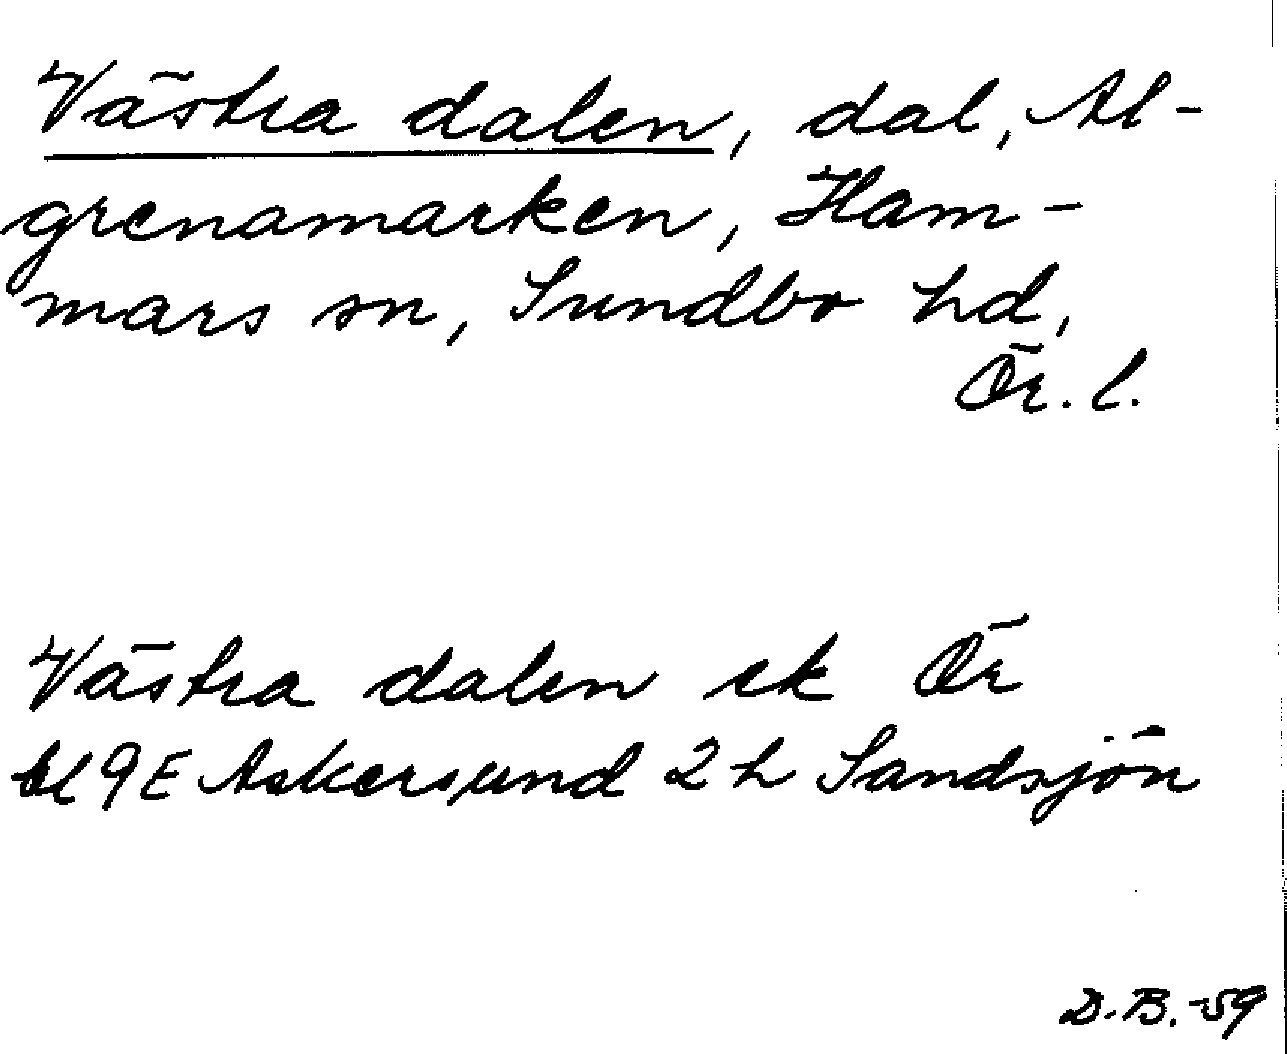 Västra dalen, dal, Al-
grenamarken, Ham-
mars sn, Sundbo hd,
Ör. l.
Västra dalen ek Ör
bl 9E Askersund 2 h Sandsjön
D.B.-59